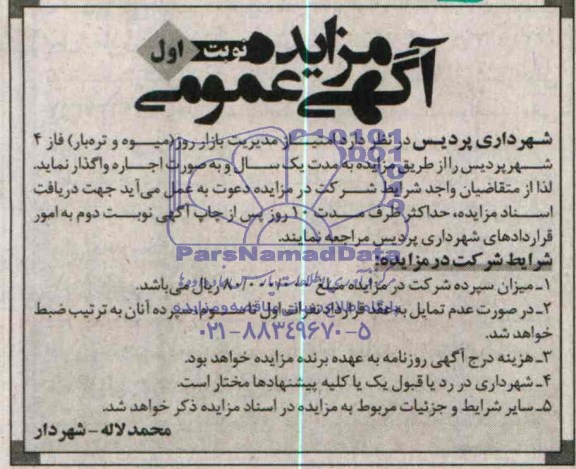 آگهی مزایده عمومی
نوبت اول
شهرداری پردیس در نظر دارد امتیاز مدیریت بازار روز (میوه و تره‌بار) فاز ۴
شهر پردیس را از طریق مزایده به مدت یک سال و به صورت اجاره واگذار نماید.
لذا از متقاضیان واجد شرایط شرکت در مزایده دعوت به عمل می‌آید جهت دریافت
اسناد مزایده، حداکثر ظرف مدت ۱۰ روز پس از چاپ آگهی نوبت دوم به امور
قراردادهای شهرداری پردیس مراجعه نمایند.
ParsNamadData
شرایط شرکت در مزایده:
۱- میزان سپرده شرکت در مزایده مبلغ ریال می‌باشد.
۲- در صورت عدم تمایل به عقد قرارداد نفرات اول تا سوم سپرده آنان به ترتیب ضبط
خواهد شد.
۰۲۱-۸۸۳۴۹۶۷۰-۵
۳- هزینه درج آگهی روزنامه به عهده برنده مزایده خواهد بود.
۴- شهرداری در رد یا قبول یک یا کلیه پیشنهادها مختار است.
۵- سایر شرایط و جزئیات مربوط به مزایده در اسناد مزایده ذکر خواهد شد.
محمد لاله - شهردار